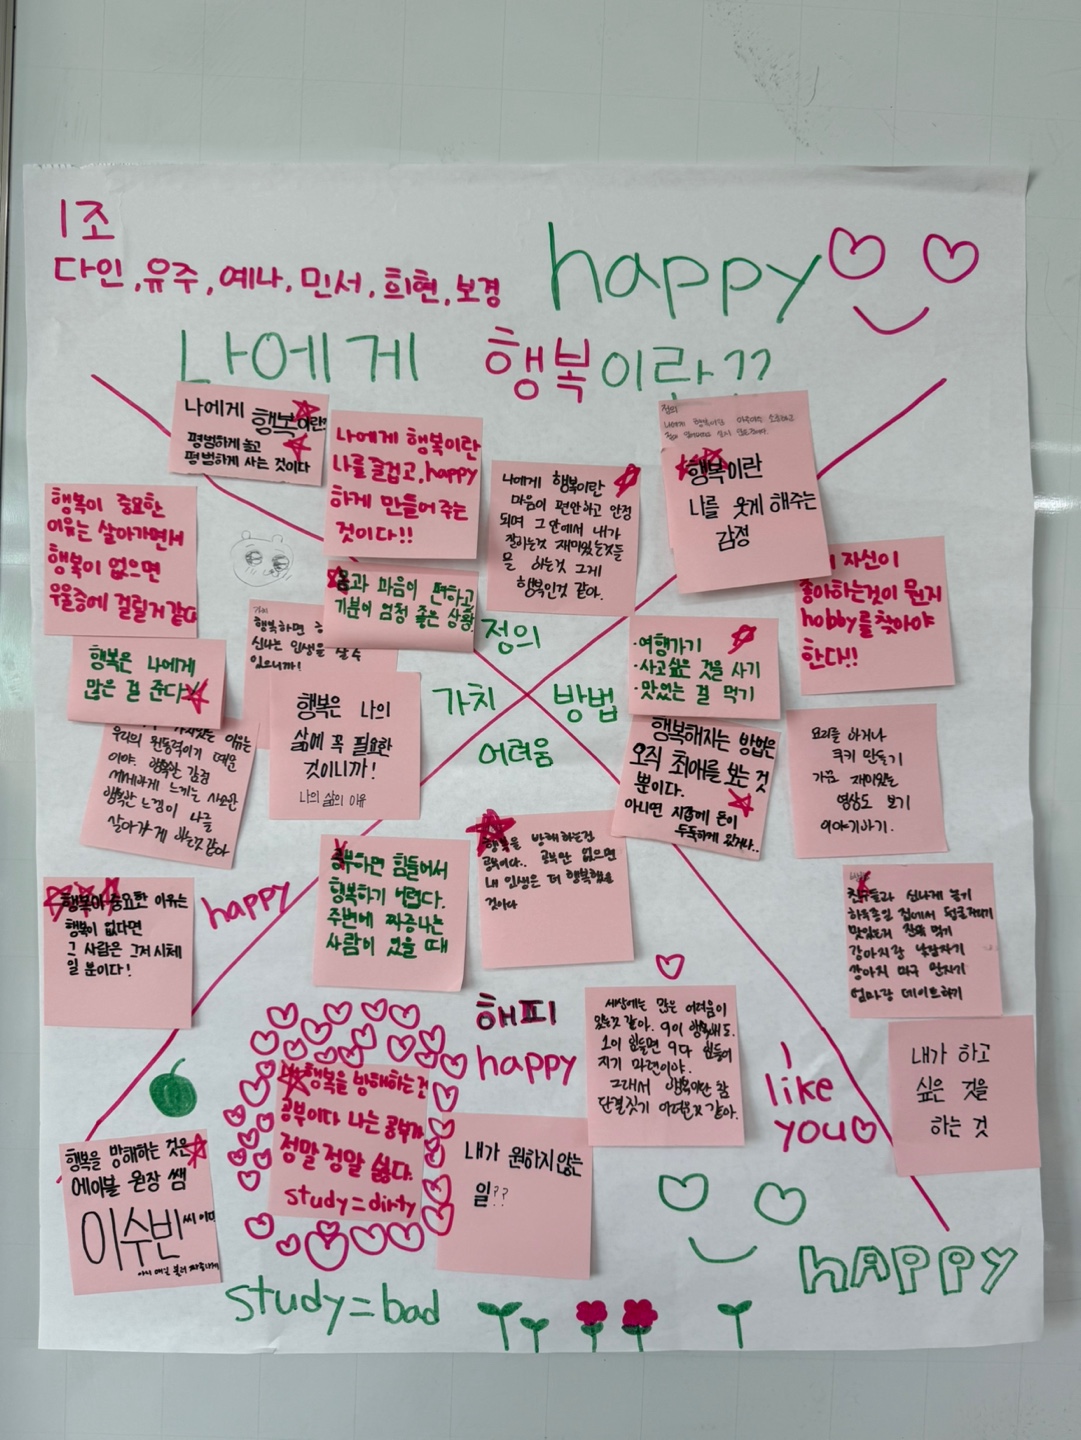 1조
다인, 유주, 예나, 민서, 희현, 보경
happy
나에게 행복이란??
나에게 행복이란?
평범하게 놀고
평범하게 사는 것이다
나에게 행복이란
나를 즐겁고, happy
하게 만들어 주는
것이다!!
나에게 행복이란
마음이 편안하고 안정
되며 그 안에서 내가
잘하는것 재미있는것들
을 하는것 그게
행복인것 같아.
정의
나에게 행복이란
행복이란
나를 웃게 해주는
감정
몸과 마음이 편하고
기분이 엄청 좋은 상황
정의
가치
방법
어려움
행복이 중요한
이유는 살아가면서
행복이 없으면
우울증에 걸릴거 같다
행복은 나에게
많은 걸 준다
행복하면
신나는 인생을 살 수
있으니까!
행복은 나의
삶에 꼭 필요한
것이니까!
나의 삶의 이유
가치있는 이유는
우리의 원동력이기 때문
이야. 행복한 감정
세세하게 느끼는 사소한
행복한 느낌이 나를
살아가게 하는것 같아
행복이 중요한 이유는
행복이 없다면
그 사람은 그저 시체
일 뿐이다!
자신이
좋아하는것이 뭔지
hobby를 찾아야
한다!!
·여행가기
·사고싶은 것을 사기
·맛있는 걸 먹기
행복해지는 방법은
오직 최애를 보는 것
뿐이다.
아니면 지갑에 돈이
두둑하게 있거나..
요리를 하거나
쿠키 만들기
가끔 재미있는
영상도 보기
이야기하기.
친구들과 신나게 놀기
하루종일 집에서 뒹굴거리기
맛있는거 잔뜩 먹기
강아지랑 낮잠자기
강아지 마구 만지기
엄마랑 데이트하기
내가 하고
싶은 것을
하는 것
happy
공부하면 힘들어서
행복하기 어렵다.
주변에 짜증나는
사람이 있을 때
행복을 방해하는건
공부이다.. 공부만 없으면
내 인생은 더 행복했을
것이다
해피
happy
세상에는 많은 어려움이
있는것 같아. 9이 행복해도.
1이 힘들면 9다 힘들어
지기 마련이야.
그래서 행복이란 참
단결짓기 어려운것 같아.
I
like
you
행복을 방해하는건
공부이다 나는 공부가
정말 정말 싫다.
study=dirty
내가 원하지 않는
일??
행복을 방해하는 것은
에이블 원장 쌤
이수빈 씨 이다
study=bad
HAPPY